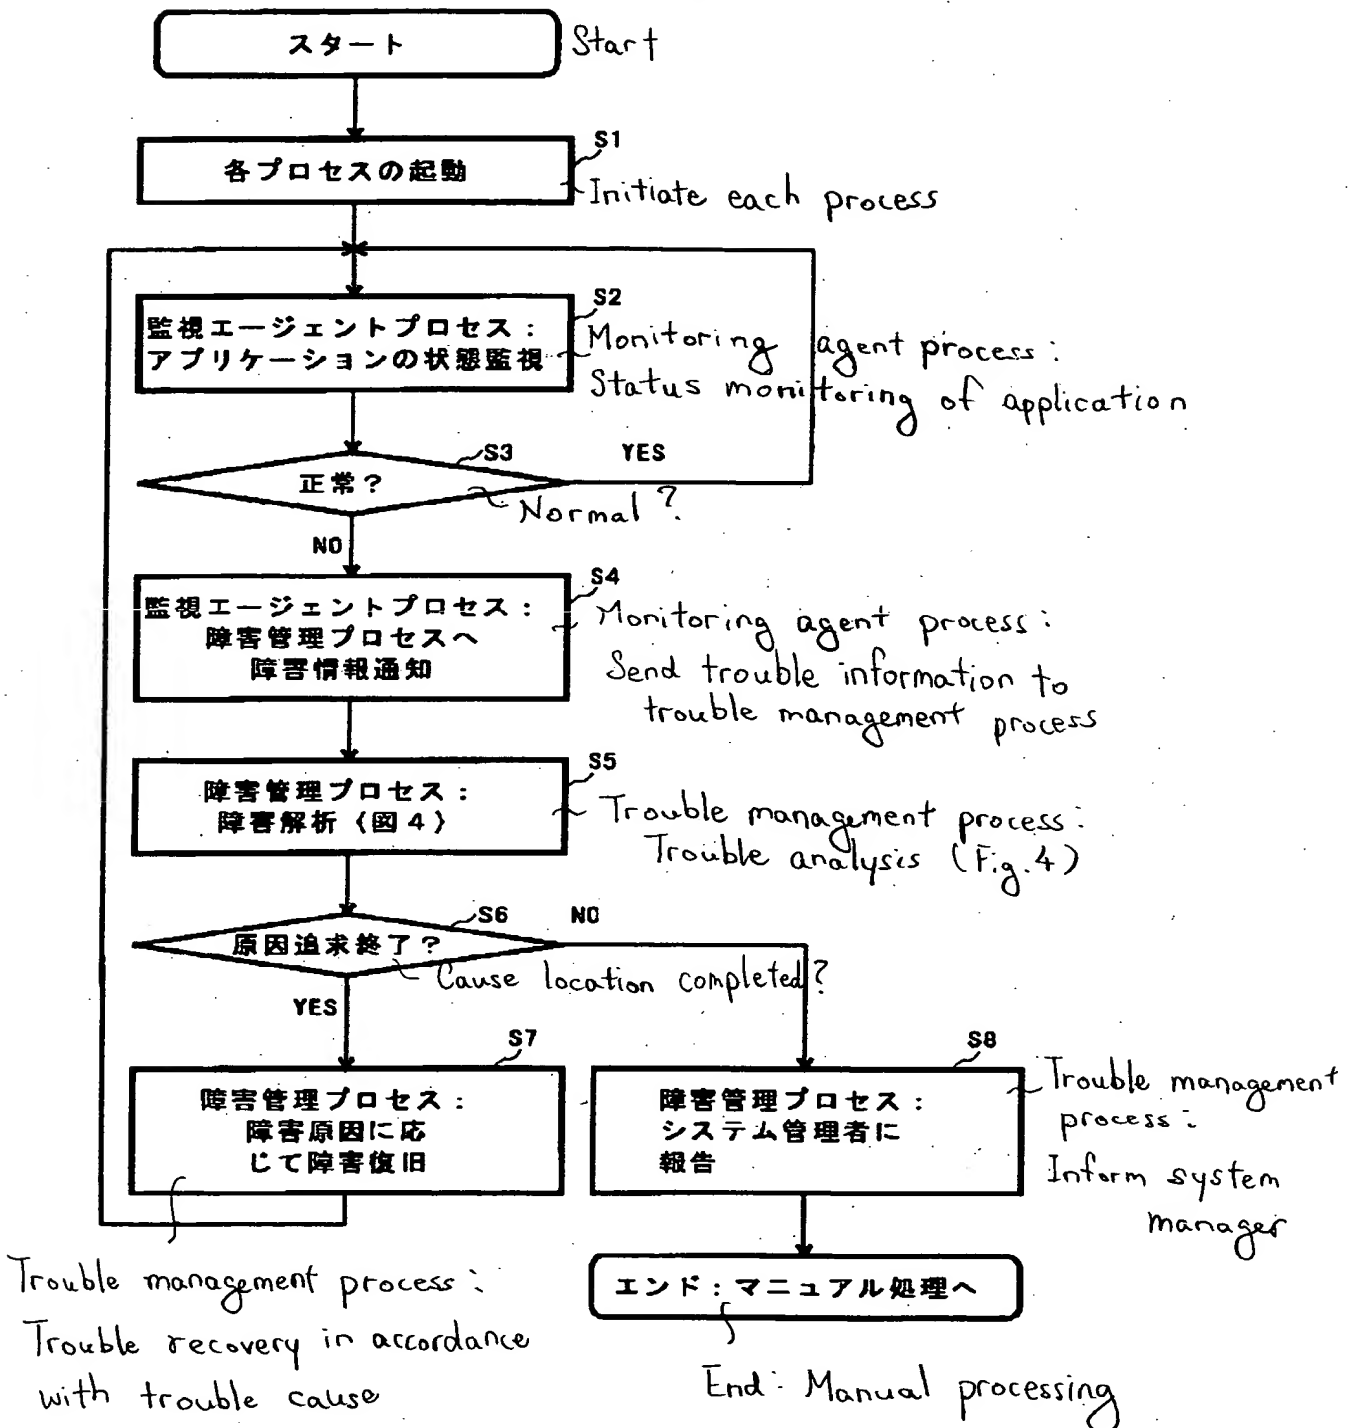 スタート
Start
S1
各プロセスの起動
Initiate each process
S2
監視エージェントプロセス：
アプリケーションの状態監視
Monitoring agent process:
Status monitoring of application
S3
YES
正常？
Normal?
NO
S4
監視エージェントプロセス：
障害管理プロセスへ
障害情報通知
Monitoring agent process:
Send trouble information to
trouble management process
S5
障害管理プロセス：
障害解析（図４）
Trouble management process:
Trouble analysis (Fig.4)
S6
NO
原因追求終了？
Cause location completed?
YES
S7
障害管理プロセス：
障害原因に応
じて障害復旧
S8
障害管理プロセス：
システム管理者に
報告
Trouble management
process:
Inform system
manager
Trouble management process:
Trouble recovery in accordance
with trouble cause
エンド：マニュアル処理へ
End: Manual processing